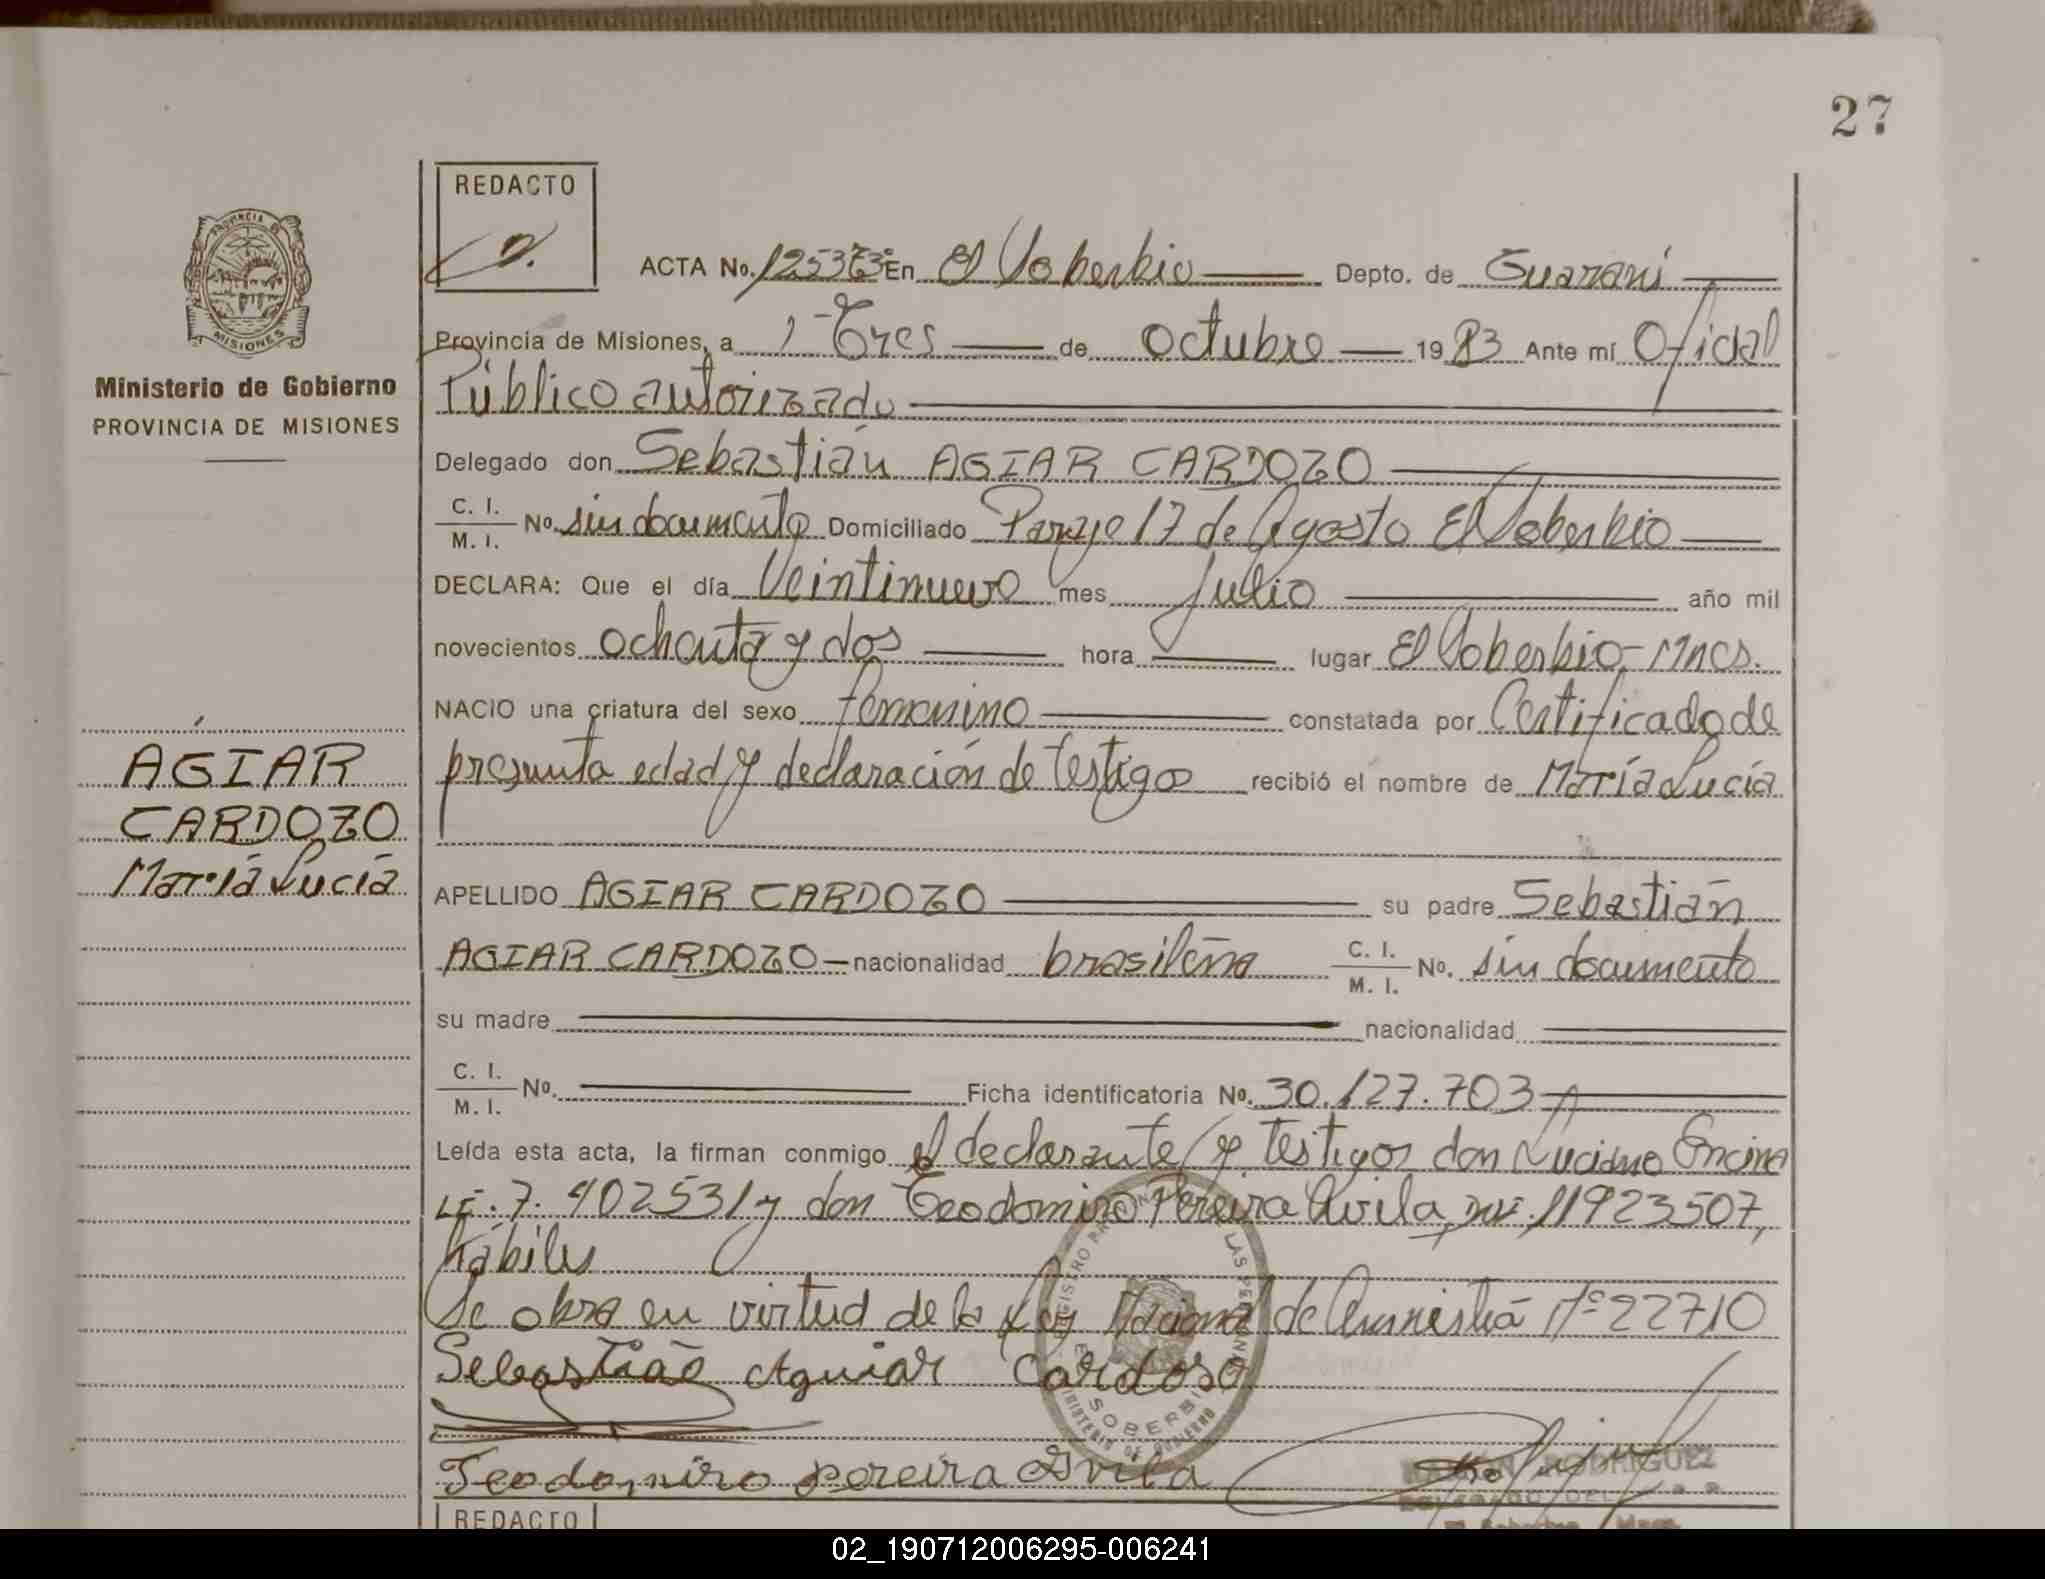 27
REDACTO
ACTA No. En El Soberbio Depto. de Guaraní
PROVINCIA DE MISIONES
Ministerio de Gobierno
PROVINCIA DE MISIONES
Provincia de Misiones, a Tres de Octubre 1983 Ante mí Oficial
Público autorizado
Delegado don Sebastián AGIAR CARDOZO
C. I.
M. I. No. sin documento Domiciliado Paraje 17 de Agosto El Soberbio
DECLARA: Que el día Veintinueve mes Julio año mil
novecientos ochenta y dos hora lugar El Soberbio-Mnes.
NACIO una criatura del sexo femenino constatada por Certificado de
presunta edad y declaración de testigos recibió el nombre de María Lucía
AGIAR
CARDOZO
María Lucía
APELLIDO AGIAR CARDOZO su padre Sebastián
AGIAR CARDOZO nacionalidad brasileña C. I.
M. I. No. sin documento
su madre nacionalidad
C. I.
M. I. No. Ficha identificatoria No. 30.127.703
Leída esta acta, la firman conmigo el declarante y testigos don Luciano Encina
LE. 7.402531 y don Teodomiro Pereira Avila, DNI. 11923507,
hábiles
Se obra en virtud de la Ley Nacional de Amnistía Nº 22710
Sebastião Aguiar Cardoso
Teodomiro pereira Avila
RAMON RODRIGUEZ
REDACTO
02_190712006295-006241